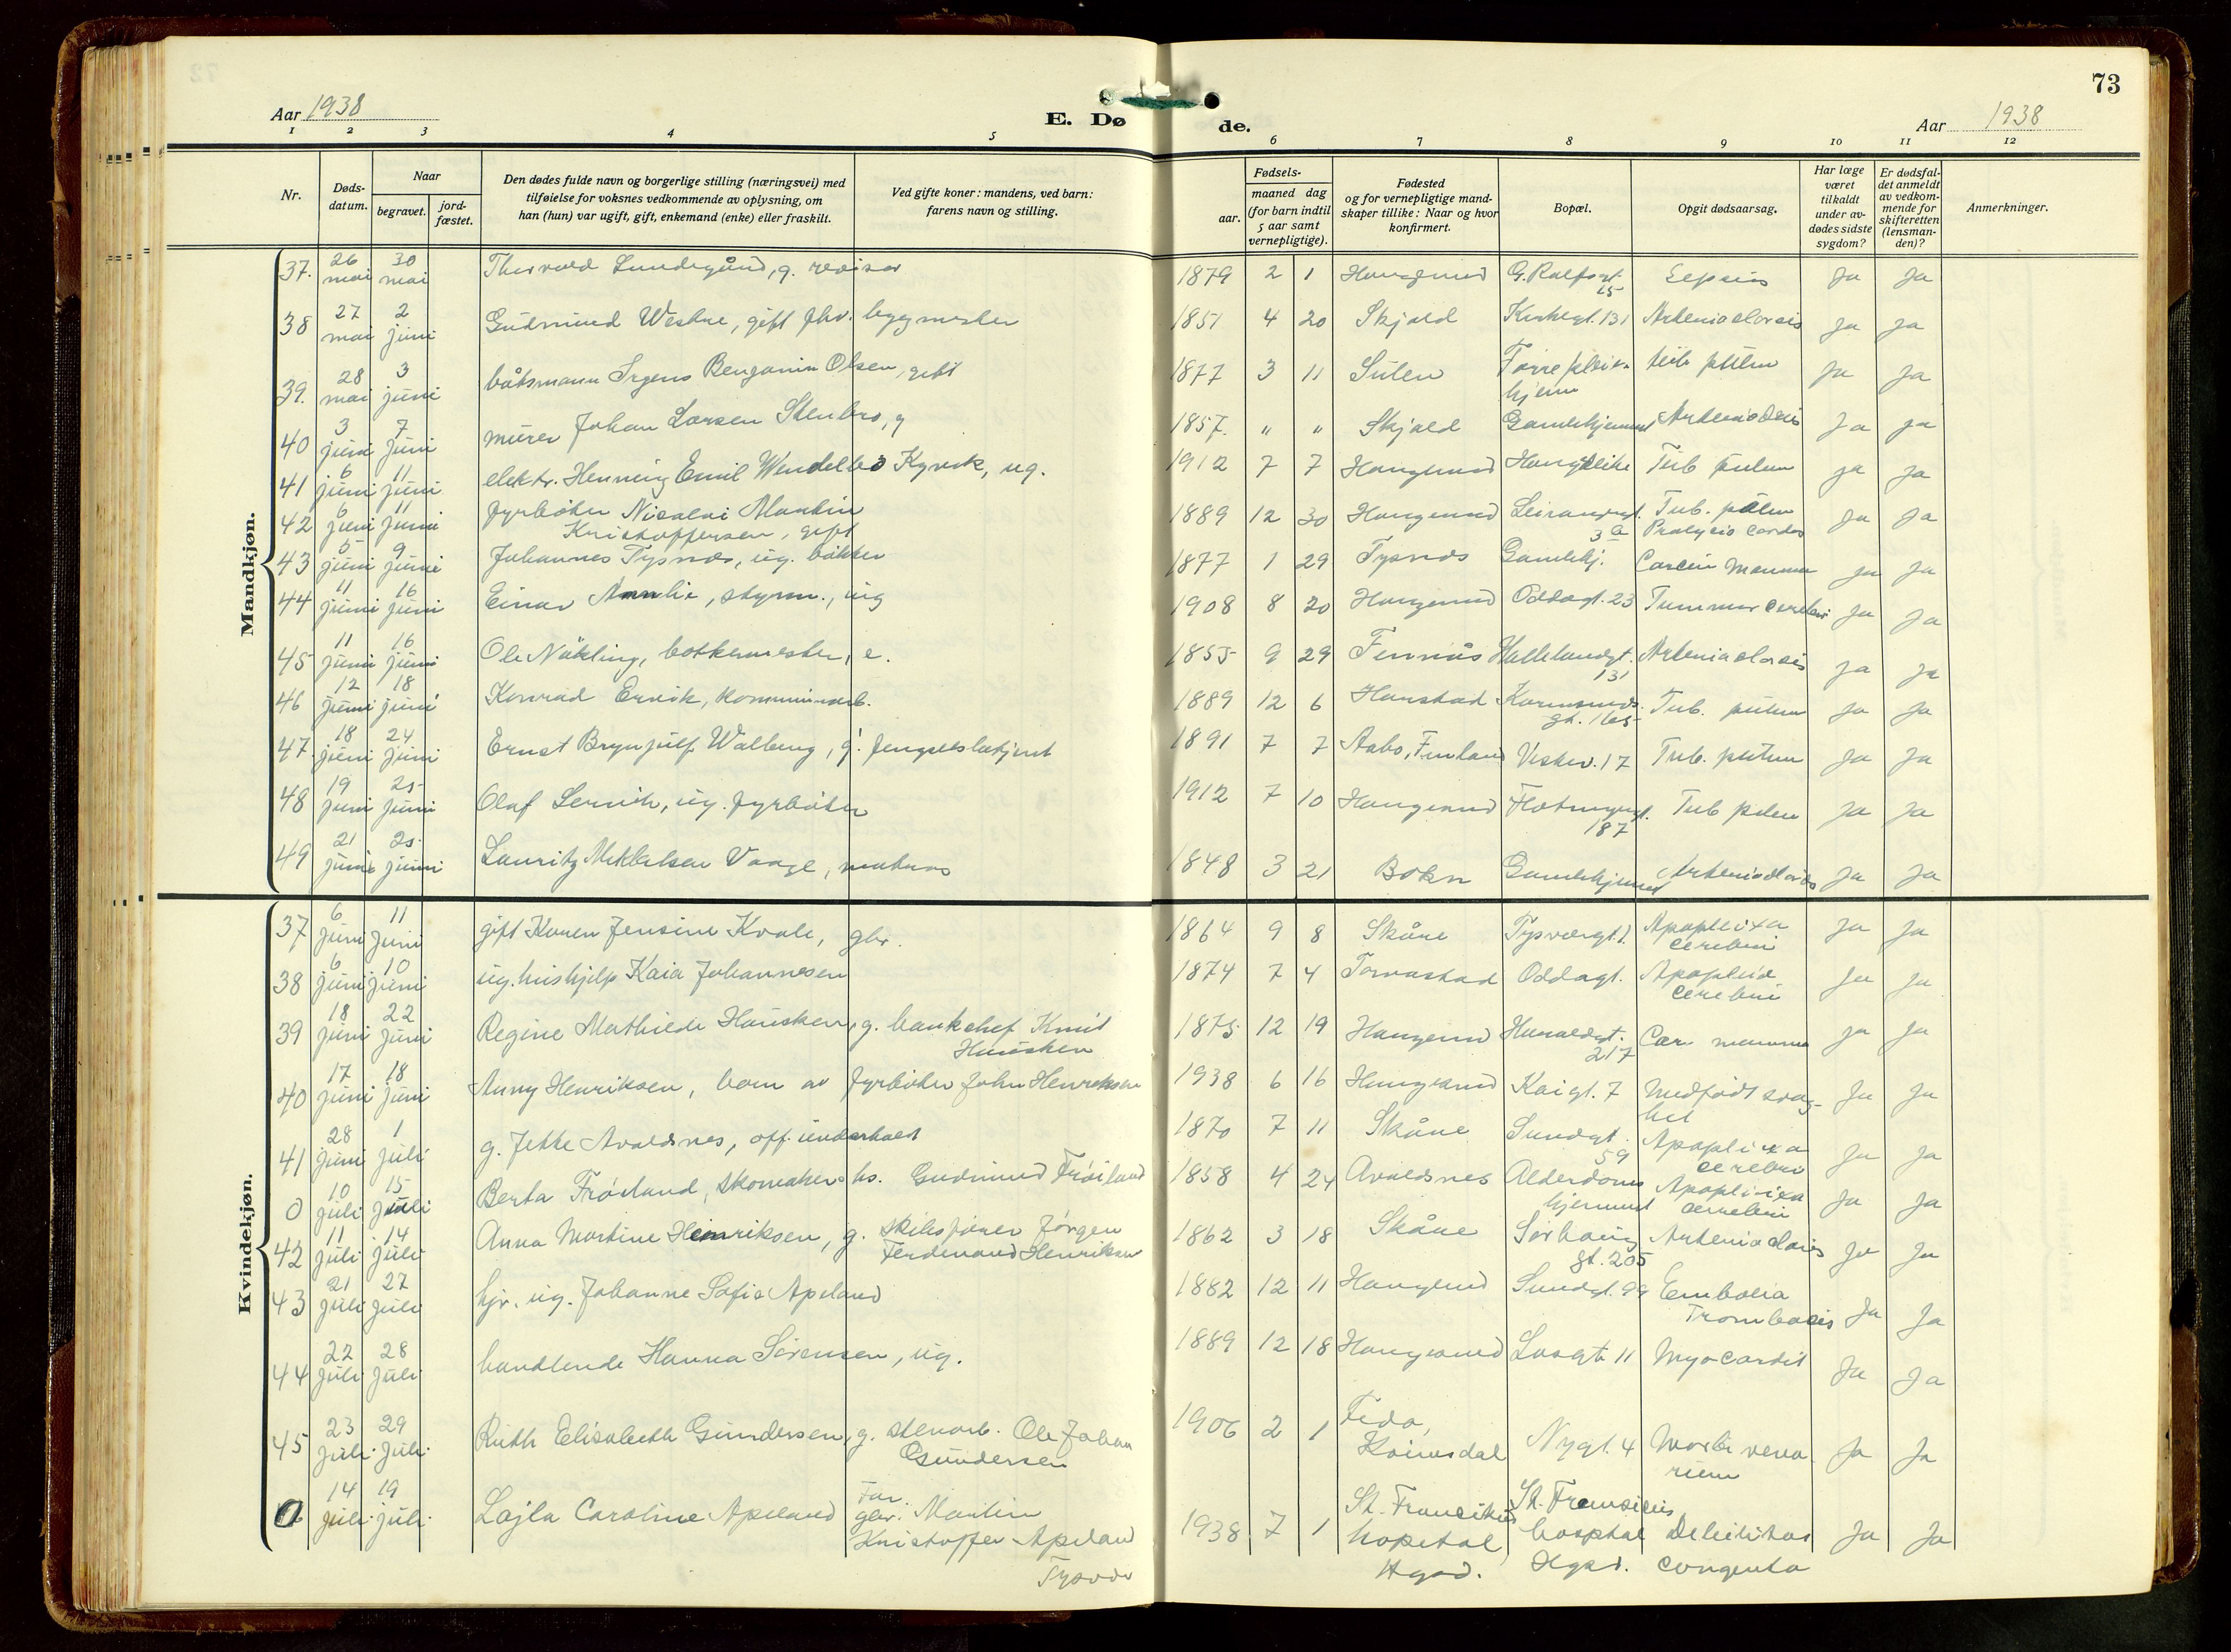 73
Aar 1938
E. Dø
de.
Aar 1938
1 2 3 4 5 6 7 8 9 10 11 12
Nr.
Døds-
datum.
Naar
begravet.
jord-
fæstet.
Den dødes fulde navn og borgerlige stilling (næringsvei) med
tilføielse for voksnes vedkommende av oplysning, om
han (hun) var ugift, gift, enkemand (enke) eller fraskilt.
Ved gifte koner: mandens, ved barn:
farens navn og stilling.
Fødsels-
aar. maaned dag
(for barn indtil
5 aar samt
vernepligtige).
Fødested
og for vernepligtige mand-
skaper tillike: Naar og hvor
konfirmert.
Bopæl.
Opgit dødsaarsag.
Har læge
været
tilkaldt
under av-
dødes sidste
sygdom?
Er dødsfal-
det anmeldt
av vedkom-
mende for
skifteretten
(lensman-
den)?
Anmerkninger.
Mandkjøn.
37. 26 mai 30 mai Thorvald Lundegård, g. revisor 1879 2 1 Haugesund G. Rolfsgt. 15 Sepsis Ja Ja
38 27 mai 2 juni Gudmund Westue, gift fhv. byggmester 1851 4 20 Skjold Kirkegt. 131 Arteriosclorosis Ja Ja
39. 28 mai 3 juni båtsmann Irgens Benjamin Olsen, gift 1877 3 11 Sulen hjem tub. pulm Ja Ja
40 3 juni 7 juni murer Johan Larsen Stenbro, g 1857. " " Skjold Gamlehjemmet Ja Ja
41 6 juni 11 juni elektr. Henning Emil Wendelbo Kyvik, ug. 1912 7 7 Haugesund Tub pulm Ja Ja
42 6 juni 11 juni fyrbøter Nicolai Martin
Kristoffersen, gift 1889 12 30 Haugesund 3 a Tub. pulm Ja Ja
43 5 juni 9 juni Johannes Tysnes, ug. bøkker 1877 1 29 Tysnes Gamlehj. Carcin mamma Ja Ja
44 11 juni 16 juni Einar Amlie, styrm., ug 1908 8 20 Haugesund Oddagt. 23 Tummor cerebri Ja Ja
45 11 juni 16 juni Ole Nökling, bøkkermester, e. 1855 9 29 131 Arteriosclorosis Ja Ja
46 12 juni 18 juni Konrad Ervik, kommunearb. 1889 12 6 Karmsunds-
gt. 165 Tub. pulm Ja Ja
47. 18 juni 24 juni Ernst Brynjulf Walberg, g. fengselsbetjent 1891 7 7 Aabo, Finland 17 Tub. pulm Ja Ja
48 19 juni 25 juni Olaf ug. fyrbøter 1912 7 10 Haugesund Flotmyrgt. 187 Tub pulm Ja Ja
49 21 juni 25 juni Lauritz Mikkelsen Vaage, matros 1848 3 21 Bokn Gamlehjemmet Arteriosclorosis Ja Ja
Kvindekjøn.
37 6 juni 11 juni gift Konen Jensine Kvale, gbr. 1864 9 8 Skåne Tysværgt. 1 Apoplexia
cerebri Ja Ja
38 6 juni 10 juni ug. hushjelp Kaia Johannesen 1874 7 4 Torvastad Oddagt. Apoplexia
cerebri Ja Ja
39 18 juni 22 juni Regine Mathilde Hausken, g. bankchef Knut
Hausken 1875 12 19 Haugesund Haraldsgt. 217 Car. mamma Ja Ja
40 17 juni 18 juni Anny Henriksen, barn av fyrbøter John Henriksen 1938 6 16 Haugesund Kaigt. 7 Medfødt svag-
het Ja Ja
41 28 juni 1 juli g. Jette Avaldsnes, off. underholdt 1870 7 11 Skåne Sundgt. 59 Apoplexia
cerebri Ja Ja
0 10 juli 15 juli Berta Frøiland, skomakers hs. Gudmund Frøiland 1858 4 24 Avaldsnes Alderdoms
hjemmet Apoplexia
cerebri Ja Ja
42 11 juli 14 juli Anna Martine Henriksen, g. skibsfører Jørgen
Ferdinand Henriksen 1862 3 18 Skåne Sørhaug
gt. 205 Arteriosclorosis Ja Ja
43 21 juli 27 juli hjv. ug. Johanne Sofie Apeland 1882 12 11 Haugesund Sundgt. 99 Embolia
Trombosis Ja Ja
44 22 juli 28 juli handlende Hanna Sørensen, ug. 1889 12 18 Haugesund Losgt. 11 Myocardit Ja Ja
45 23 juli 29 juli Ruth Elisabeth Gundersen, g. stenarb. Ole Johan
Gundersen 1906 2 1 Feda,
Kvinesdal Nygt. 4 Ja Ja
0 14 juli 19 juli Lajla Caroline Apeland Far.
gbr. Martin
Kristoffer Apeland
Tysvær 1938 7 1 St. Franciskus
hospital
Hgsd. St. Franciskus
hospital
Hgsd. Debilitas
congenita Ja Ja